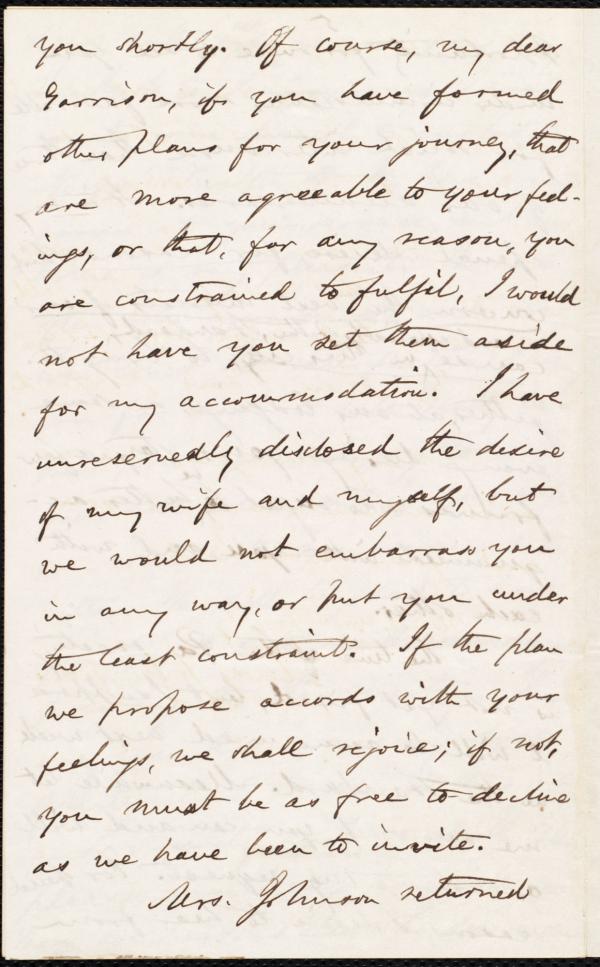 you shortly. Of course, my dear
Garrison, if you have formed
other plans for your journey, that
are more agreeable to your feel-
ings, or that, for any reason, you
are constrained to fulfil, I would
not have you set them aside
for my accommodation. I have
unreservedly disclosed the desire
of my wife and myself, but
we would not embarrass you
in any way, or put you under
the least constraint. If the plan
we propose accords with your
feelings, we shall rejoice; if not,
you must be as free to decline
as we have been to invite.
Mrs. Johnson returned